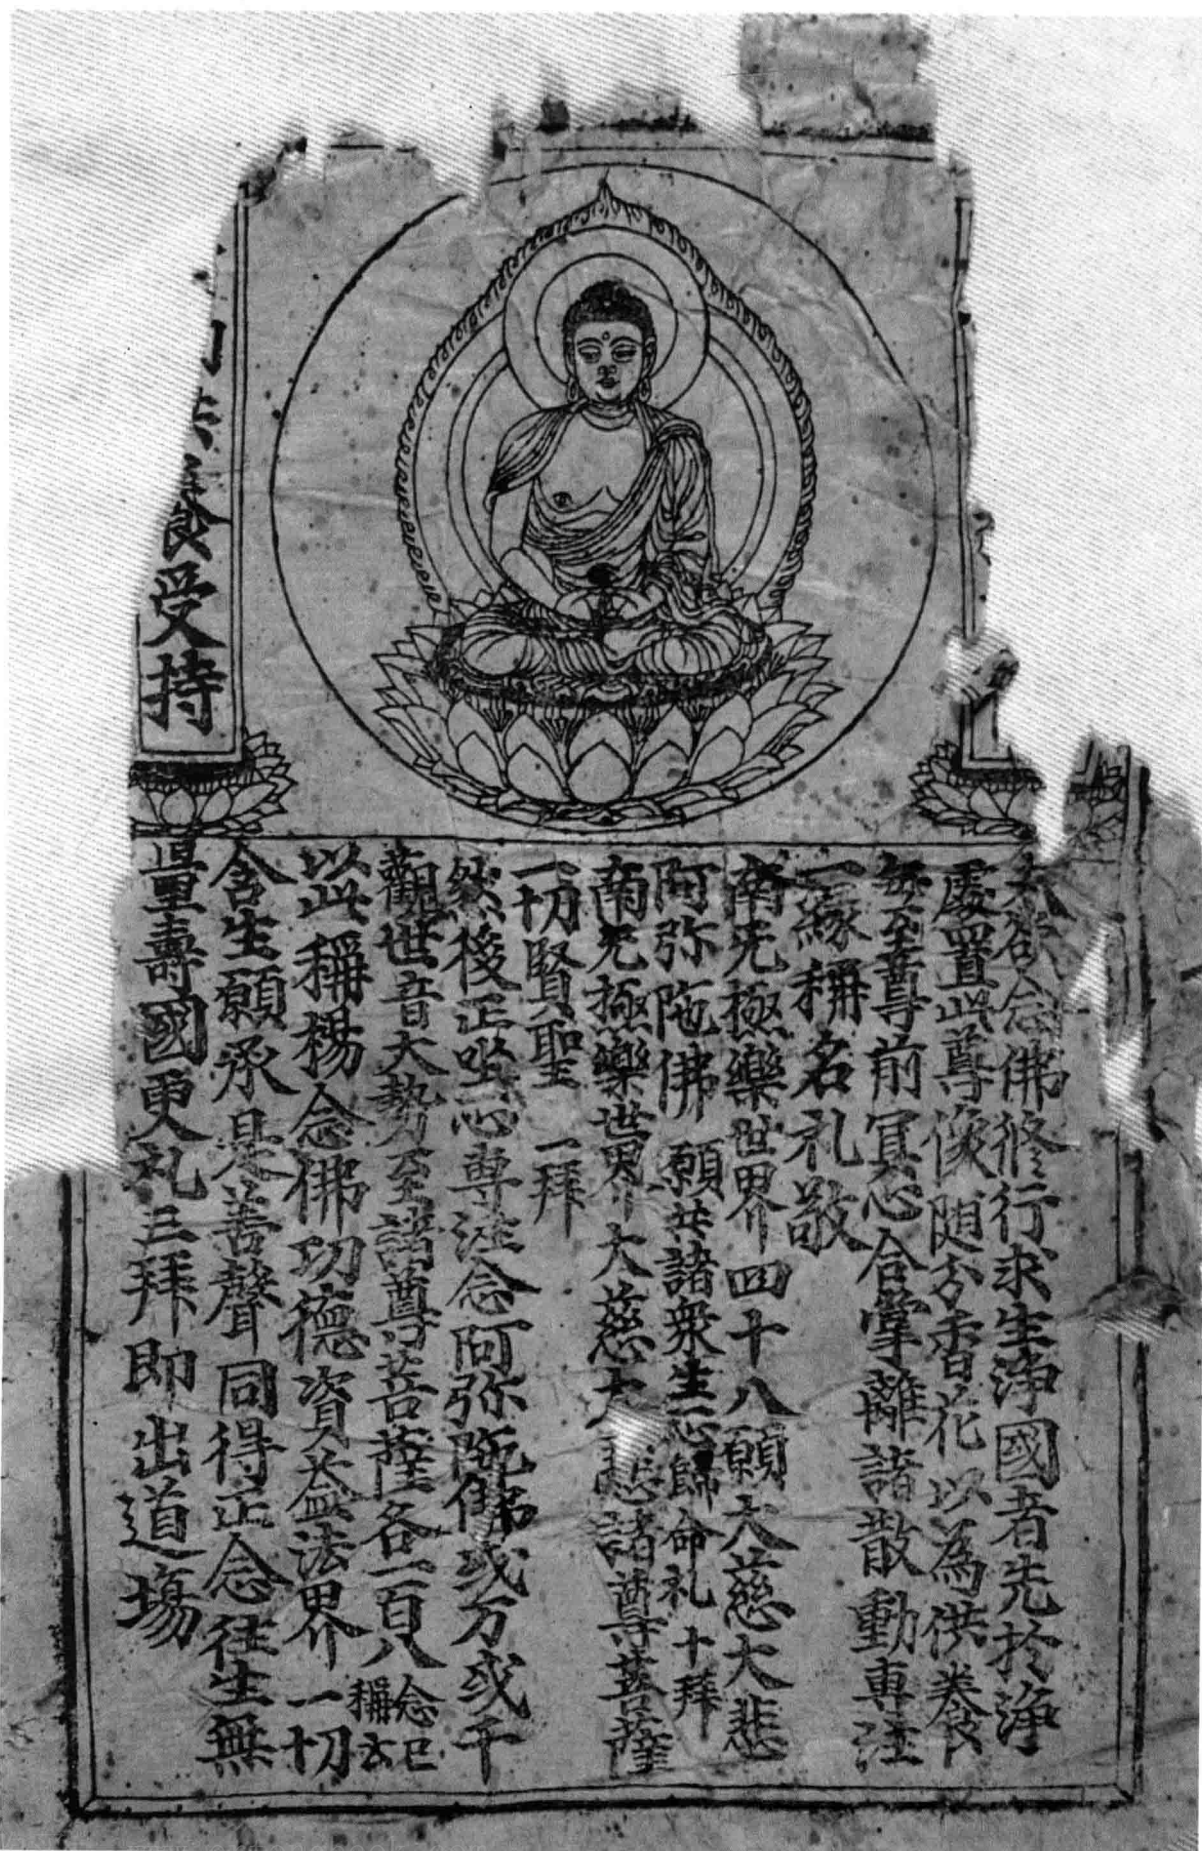 夫欲念佛修行求生淨國者先於淨
處置此尊像随分香花以為供養
每至尊前冥心合掌離諸散動專注
一緣稱名礼敬
南无極樂世界四十八願大慈大悲
阿弥陁佛 願共諸衆生一心歸命礼十拜
南无極樂世界大慈大悲諸尊菩薩
一切賢聖 一拜
然後正坐一心專注念阿弥陁佛或万或千
觀世音大勢至諸尊菩薩各一百八 念已稱云
以此稱楊念佛功德資益法界一切
含生願承是善聲同得正念往生無
量壽國更礼三拜即出道場
養受持